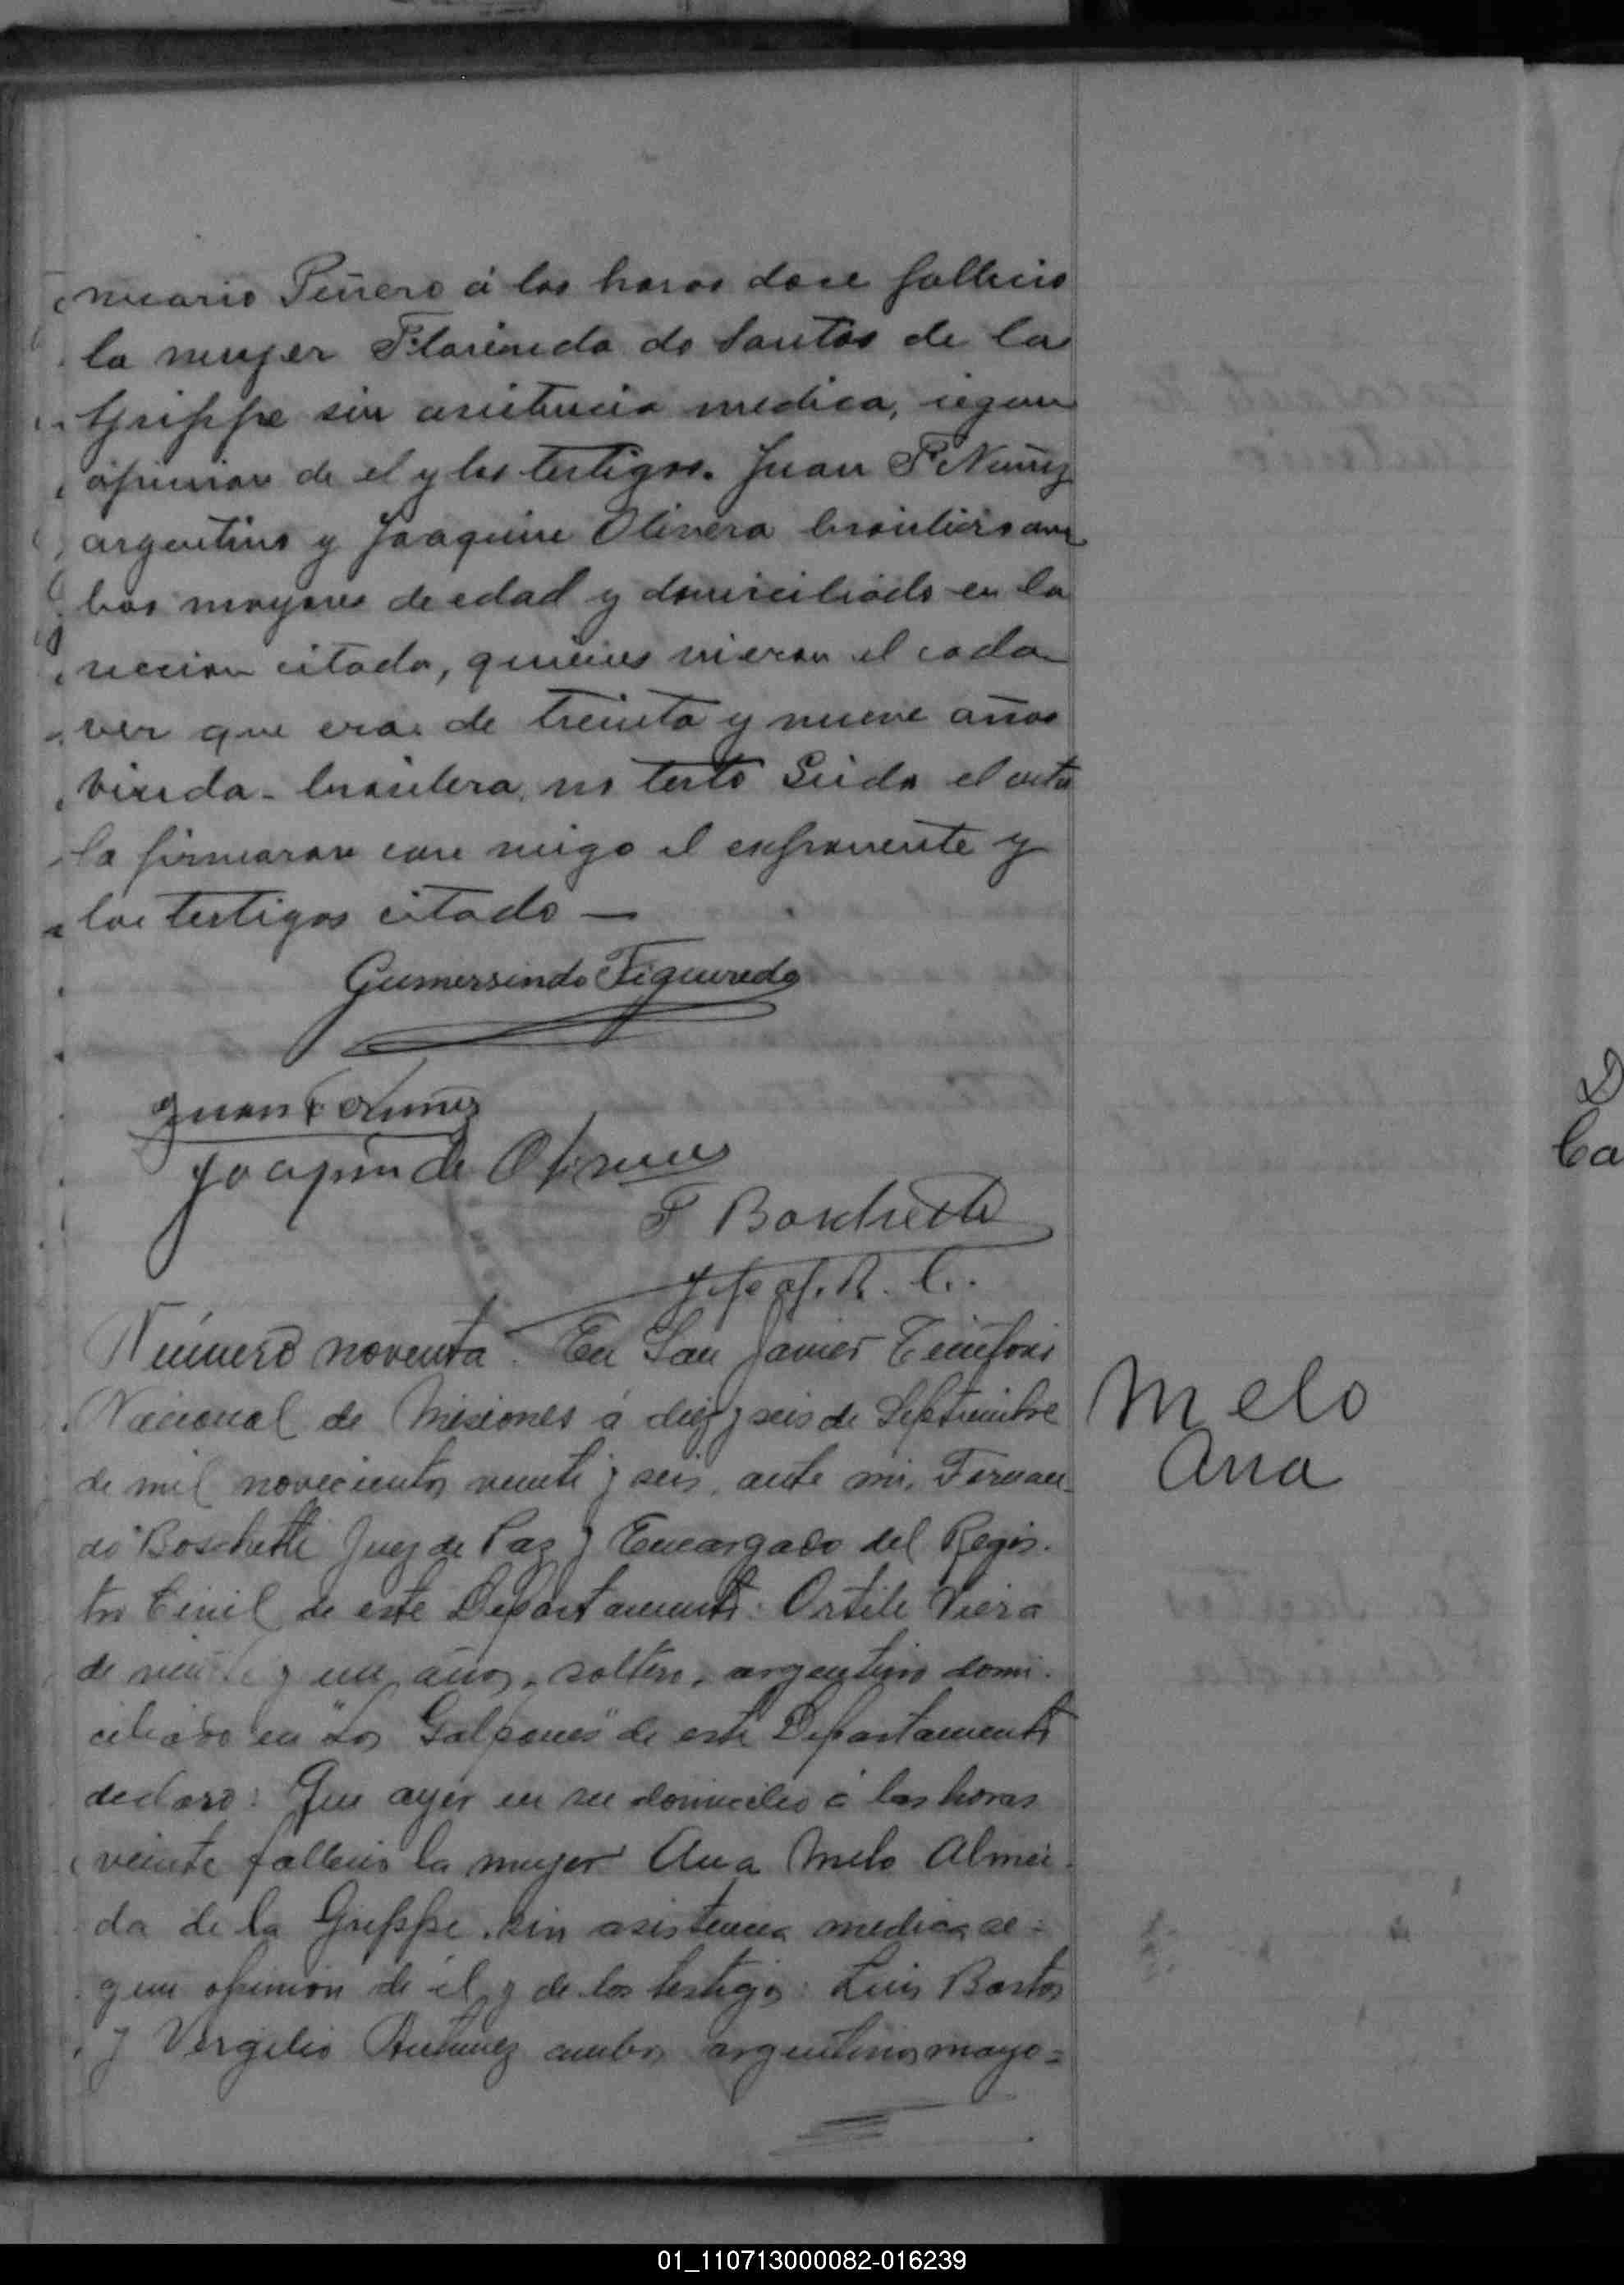 Piñero á las horas doce fallecio
la mujer Florinda do Santos de la
Grippe sin asistencia medica, segun
opinion de el y los testigos. Juan F Nuñez
argentino y Joaquin Olivera brasilero am
bos mayores de edad y domiciliado en la
seccion citada, quienes vieron el cada
ver que era de treinta y nueve años
viuda - brasilera, no testó Leida el acta
la firmaron con migo el exponente y
los testigos citado —
Gumersindo Figueredo
Juan F Nuñez
Joaquin de
F Boschetti
Número noventa. En San Javier Territorio
Nacional de Misiones á diez y seis de Septiembre
de mil novecientos veinte y seis, ante mi, Fernan
do Boschetti Juez de Paz y Encargado del Regis-
tro Civil de este Departamento: Viera
de veinte y un años, soltero, argentino domi-
ciliado en "Los Galpones" de este Departamento
declaro: Que ayer en su domicilio á las horas
veinte fallecio la mujer Ana Melo Almei-
da de la Grippe, sin asistencia medica se=
gun opinion de él y de los testigos: Luis Bastos
y Vergilio ambos argentinos mayo=
Melo
Ana
D
Ca
01_110713000082-016239